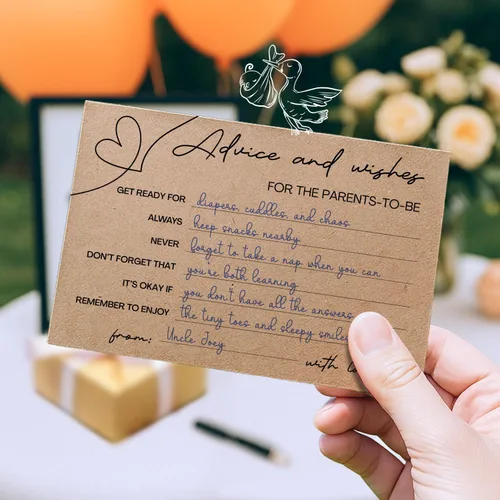 Advice and wishes
FOR THE PARENTS-TO-BE
GET READY FOR diapers, cuddles, and chaos
ALWAYS keep snacks nearby
NEVER forget to take a nap when you can
DON'T FORGET THAT you're both learning
IT'S OKAY IF you don't have all the answers
REMEMBER TO ENJOY the tiny toes and sleepy smiles
from: Uncle Joey
with